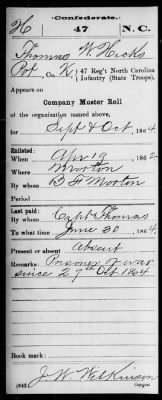 Confederate.
H 47 N.C.
Thomas W. Hicks
Pvt, Co. K, 47 Reg't North Carolina
Infantry (State Troops).
Appears on
Company Muster Roll
of the organization named above,
for Sept & Oct, 1864.
Enlisted:
When Apr 19, 1862
Where Morton
By whom B F Morton
Period
Last paid:
By whom Capt Thomas
To what time June 30, 1864.
Present or absent Absent
Remarks: Prisoner of war
since 27th Oct 1864
Book mark:
J. W. Wilkinson
(642) Copyist.